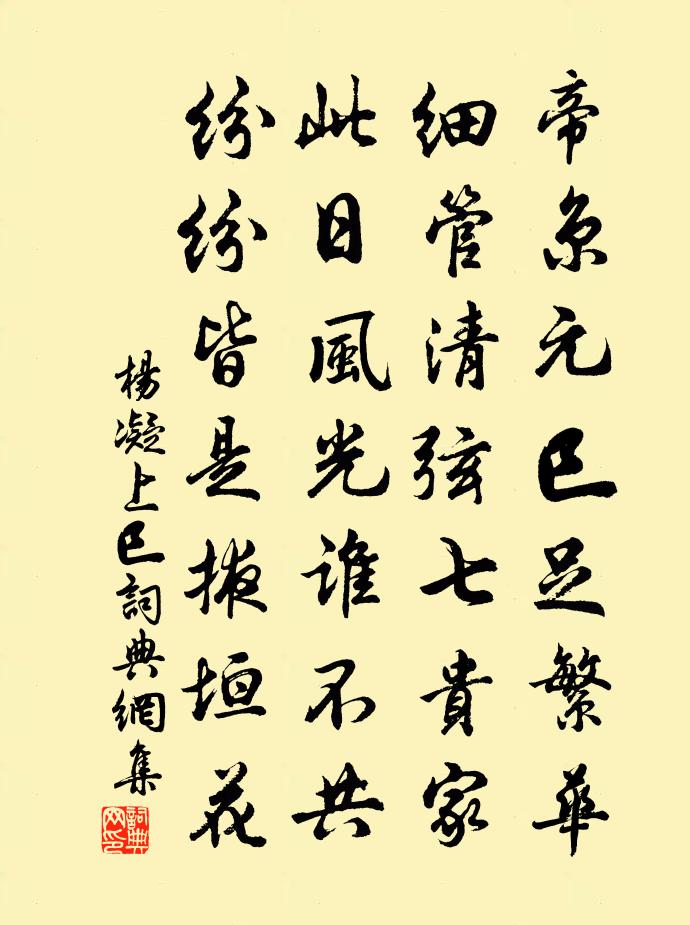 帝京元巳足繁華
細管清弦七貴家
此日風光誰不共
紛紛皆是掖垣花
楊凝上巳詞典網集
詞典網印